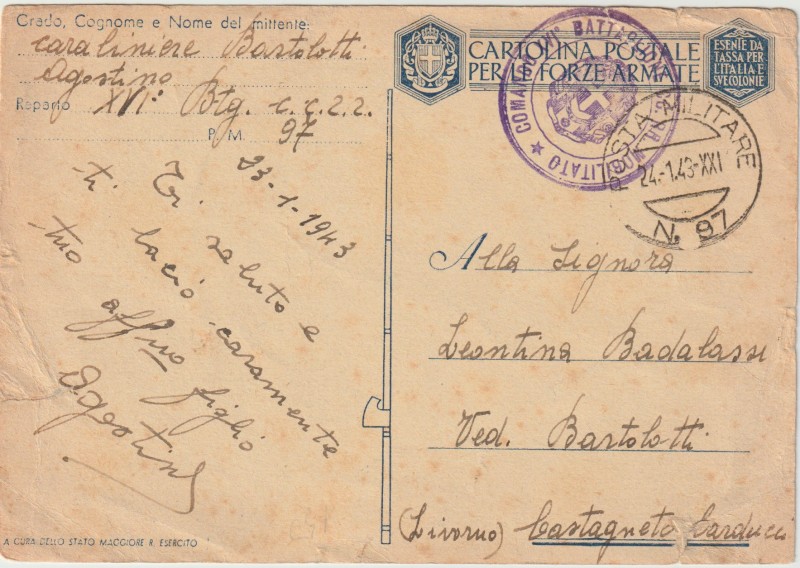 Grado, Cognome e Nome del mittente:
Carabiniere Bartolotti
Agostino
Reparto XVI° Btg. C.C.2.2.
P. M. 97
23-1-1943
Ti saluto e
ti bacio caramente
tuo affmo figlio
Agostino
A CURA DELLO STATO MAGGIORE R. ESERCITO
CARTOLINA POSTALE
PER LE FORZE ARMATE
ESENTE DA
TASSA PER
L'ITALIA E
SUE COLONIE
COMANDO XVI° BATTAGLIONE MOBILITATO
POSTA MILITARE
24.-1.43-XXI
N. 97
Alla Signora
Leontina Badalassi
Ved. Bartolotti
(Livorno) Castagneto Carducci